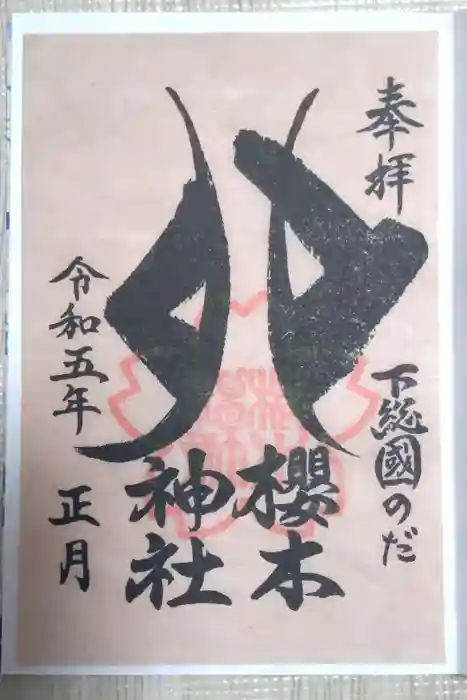 奉拝
下総國のだ
櫻木
神社
令和五年
正月